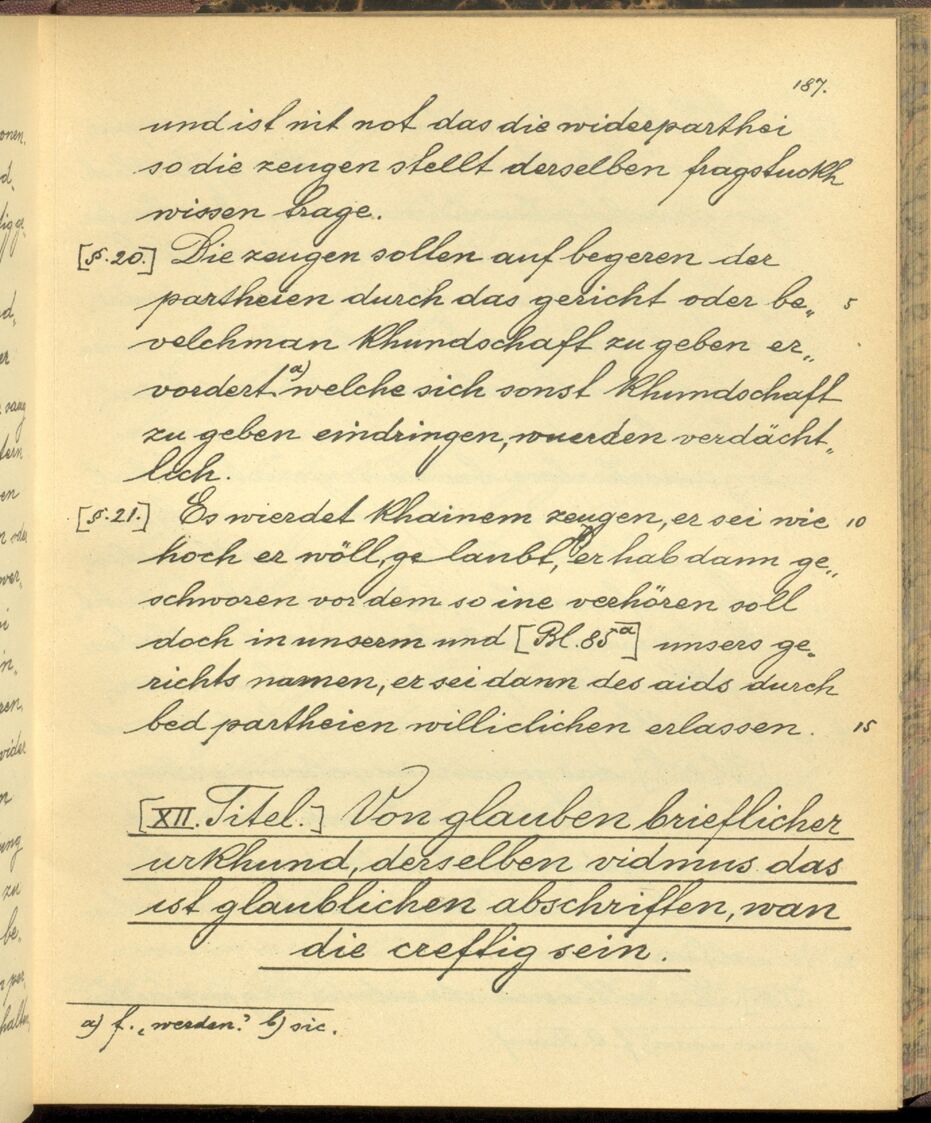 187.
und ist nit not das die widerparthei
so die zeugen stellt derselben fragstuckh
wissen trage.
[§. 20.] Die zeugen sollen auf begeren der
partheien durch das gericht oder be„ 5
velchman khundschaft zu geben er„
vordert a) welche sich sonst khundschaft
zu geben eindringen, wuerden verdächt„
lich.
[§. 21.] Es wierdet khainem zeugen, er sei wie 10
hoch er wöll, ge laubt, b) er hab dann ge„
schworen vor dem so ine verhören soll
doch in unserm und [Bl. 85a] unsers ge„
richts namen, er sei dann des aids durch
bed partheien williclichen erlassen. 15
[XII. Titel.] Von glauben brieflicher
urkhund, derselben vidmus das
ist glaublichen abschriften, wan
die creftig sein.
a) f. „werden.“ b) sic.
onen,
d,
d,
er
tern
en
wer,
i
in,
ren,
wider
n
ung
zu
be,
per
halten